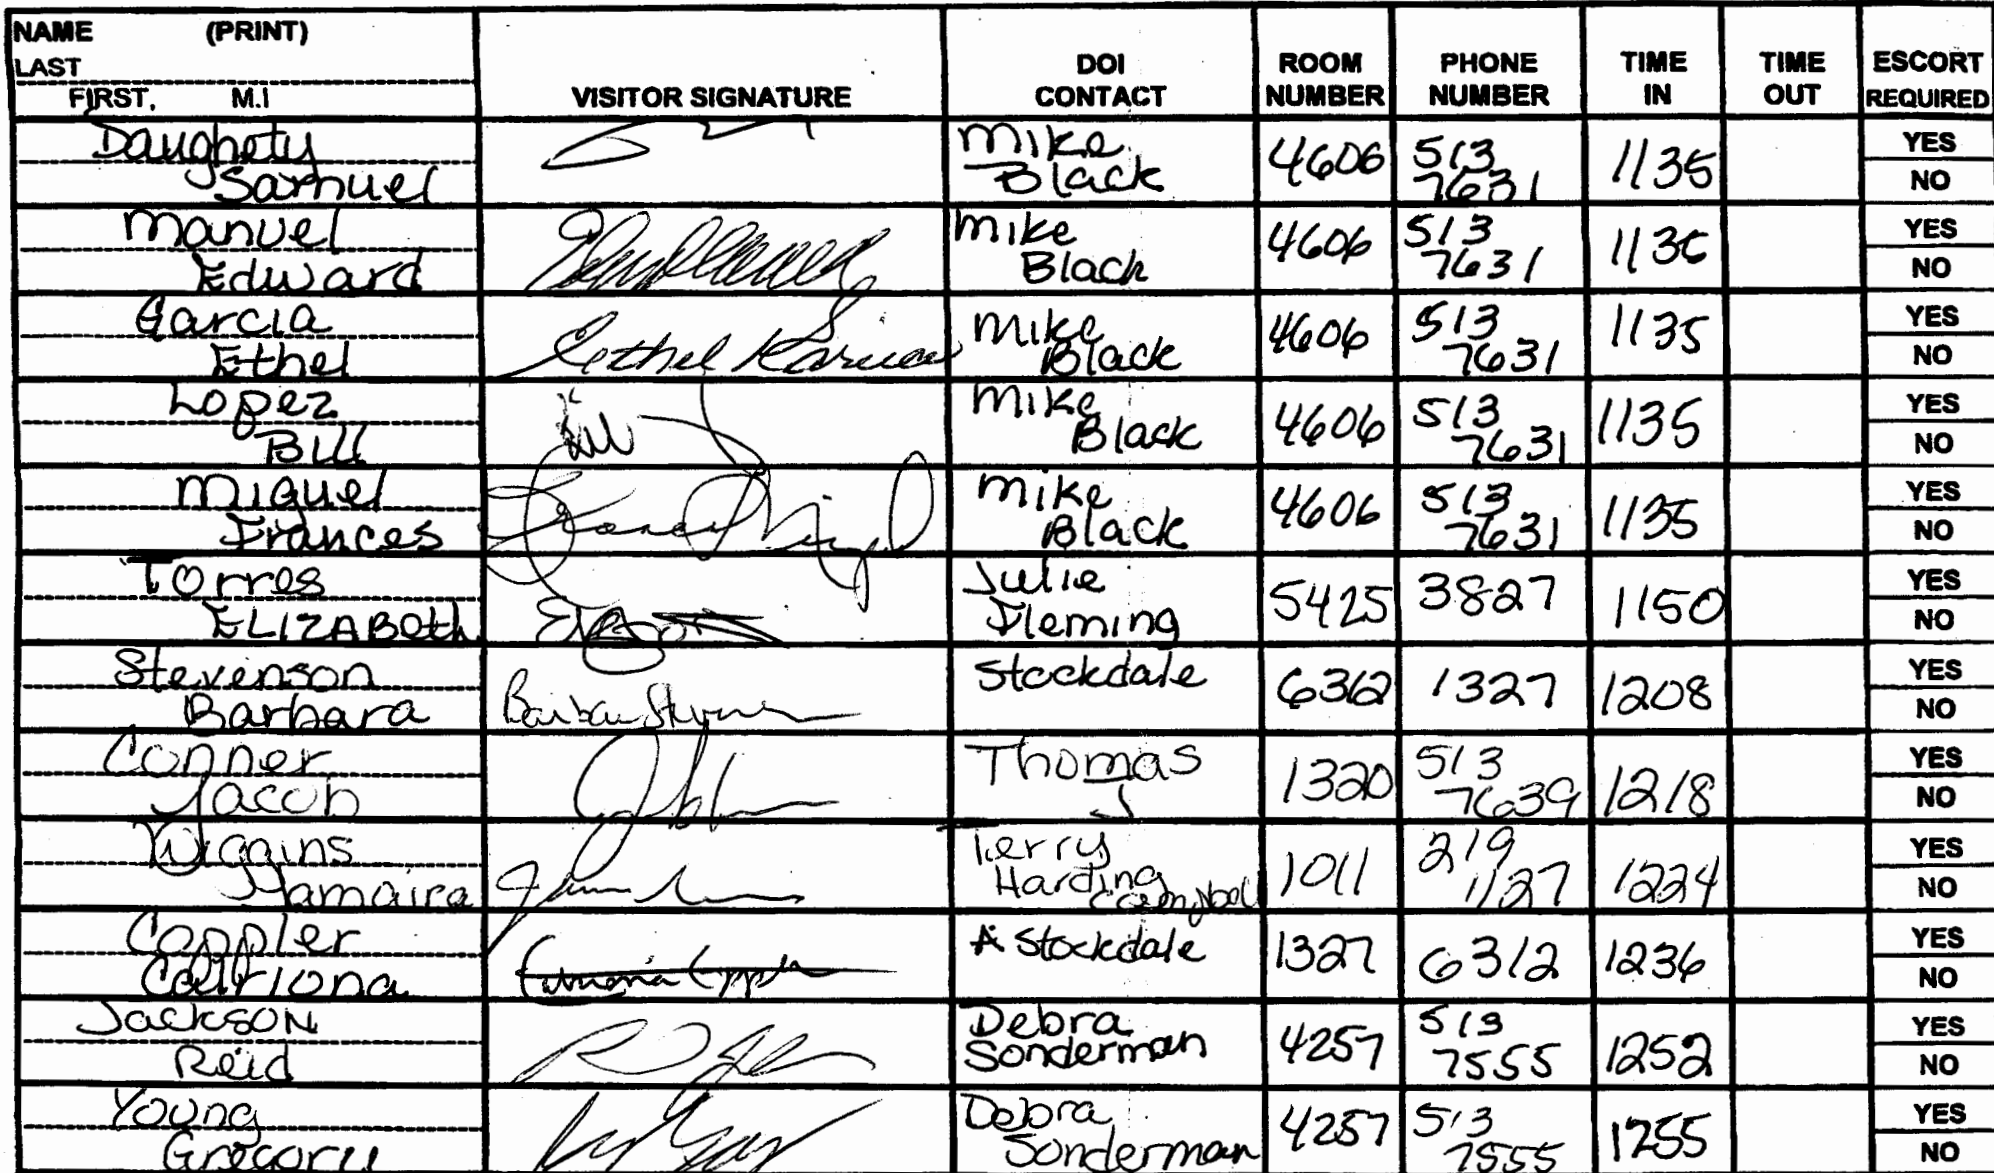 NAME (PRINT)
LAST
FIRST, M.I
VISITOR SIGNATURE
DOI
CONTACT
ROOM
NUMBER
PHONE
NUMBER
TIME
IN
TIME
OUT
ESCORT
REQUIRED
Daughety
Samuel
Mike
Black
4606
513
7631
1135
YES
NO
Manuel
Edward
Mike
Black
4606
513
7631
YES
NO
Garcia
Ethel
Ethel Garcia
Mike
Black
4606
513
7631
1135
YES
NO
Lopez
Bill
Mike
Black
4606
513
7631
1135
YES
NO
Miguel
Frances
Mike
Black
4606
513
7631
1135
YES
NO
Torres
ELIZABeth
Julie
Fleming
5425
3827
1150
YES
NO
Stevenson
Barbara
Stockdale
6362
1327
1208
YES
NO
Conner
Jacob
Thomas
J
1320
513
7639
1218
YES
NO
Wiggins
Jamaira
Terry
Harding
Campbell
1011
219
1127
1224
YES
NO
Coppler
Catriona
A Stockdale
1327
6312
1236
YES
NO
JacksoN
Reid
Debra
Sonderman
4257
513
7555
1252
YES
NO
Young
Gregory
Debra
Sonderman
4257
513
7555
1255
YES
NO